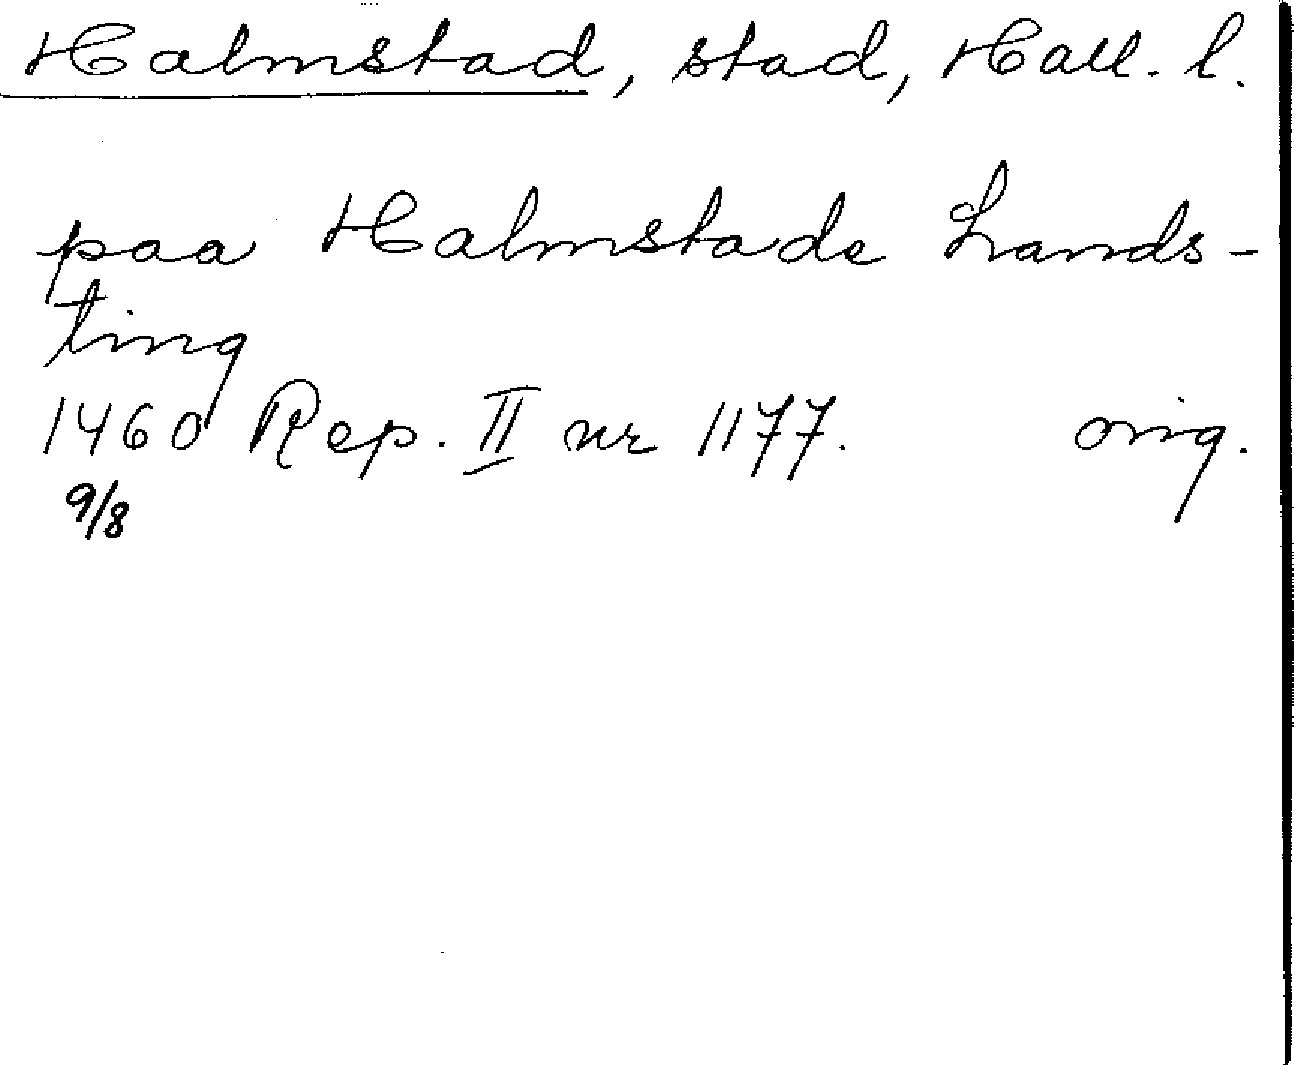 Halmstad, stad, Hall. l.
paa Halmstade Lands-
ting
1460 Rep. II nr 1177. orig.
9/8